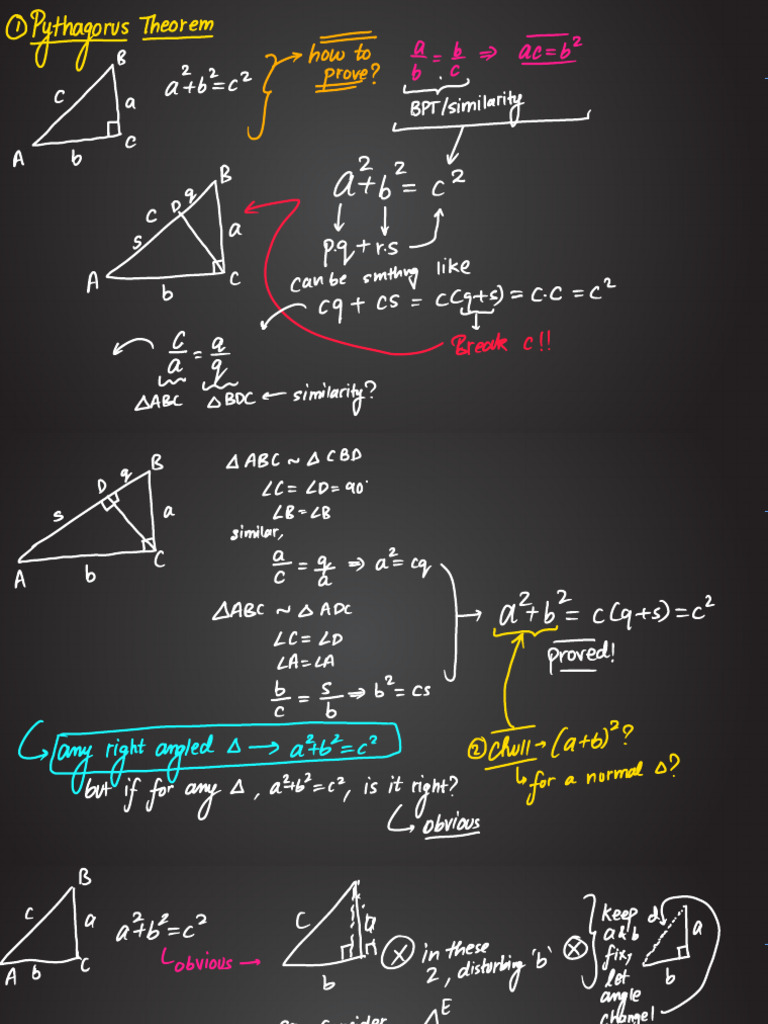 ① Pythagorus Theorem
B
c
a
A
b
C
a²+b²=c²
how to
prove?
a/b = b/c ⇒ ac=b²
BPT/similarity
B
q
D
C
s
a
A
b
C
a²+b²= c²
p.q+r.s
can be smthng like
cq + cs = c(q+s) = c.c = c²
Break c!!
c/a = a/q
△ABC △BDC ← similarity?
B
q
D
s
a
A
b
C
△ABC ~ △CBD
∠C = ∠D = 90°
∠B = ∠B
similar,
a/c = q/a ⇒ a²=cq
△ABC ~ △ADC
∠C = ∠D
∠A = ∠A
b/c = s/b ⇒ b²=cs
a²+b²= c(q+s)=c²
proved!
any right angled △ → a²+b²=c²
② chull → (a+b)²?
for a normal △?
but if for any △, a²+b²=c², is it right?
obvious
B
c
a
A
b
C
a²+b²=c²
obvious →
c
a
b
in these
2, disturbing 'b'
keep
a & b
fix,
let
angle
change!
d
a
b
E